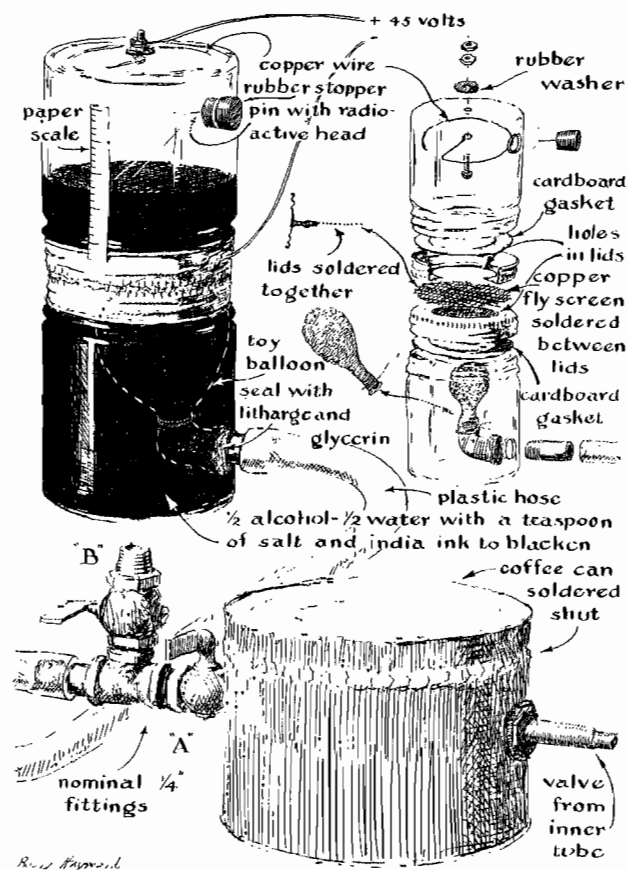 + 45 volts
copper wire
rubber stopper
pin with radio-
active head
paper
scale
rubber
washer
cardboard
gasket
holes
in lids
copper
fly screen
soldered
between
lids
cardboard
gasket
lids soldered
together
toy
balloon
seal with
litharge and
glycerin
plastic hose
½ alcohol-½ water with a teaspoon
of salt and india ink to blacken
"B"
coffee can
soldered
shut
"A"
nominal ¼"
fittings
valve
from
inner
tube
Hayward